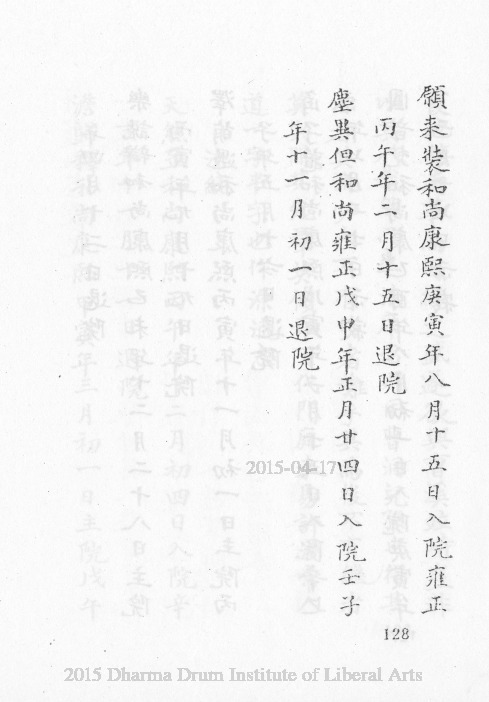 願来裝和尚康熙庚寅年八月十五日入院雍正
丙午年二月十五日退院
塵異但和尚雍正戊申年正月廿四日入院壬子
年十一月初一日退院
2015-04-17
128
2015 Dharma Drum Institute of Liberal Arts